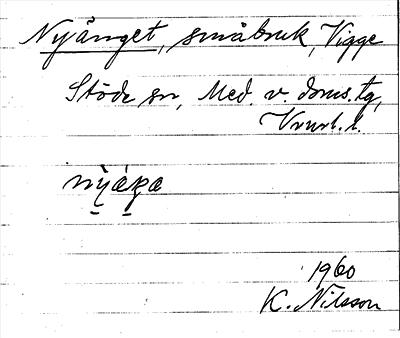 Nyånget, småbruk, Vigge
Stöde sn, Med. v. doms. tg,
Vrnrl. l.
nỳáŋa
1960
K. Nilsson